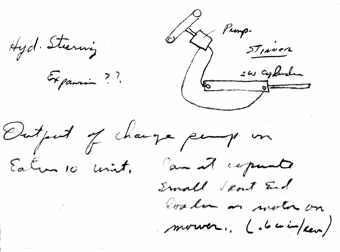 Pump.
Hyd. Steering
2W cylinder
Expansion ??.
Output of charge pump on
Eaton 10 unit. Can it operate
Small Front End
loader or motor on
mower.. (.6 cuin/rev)